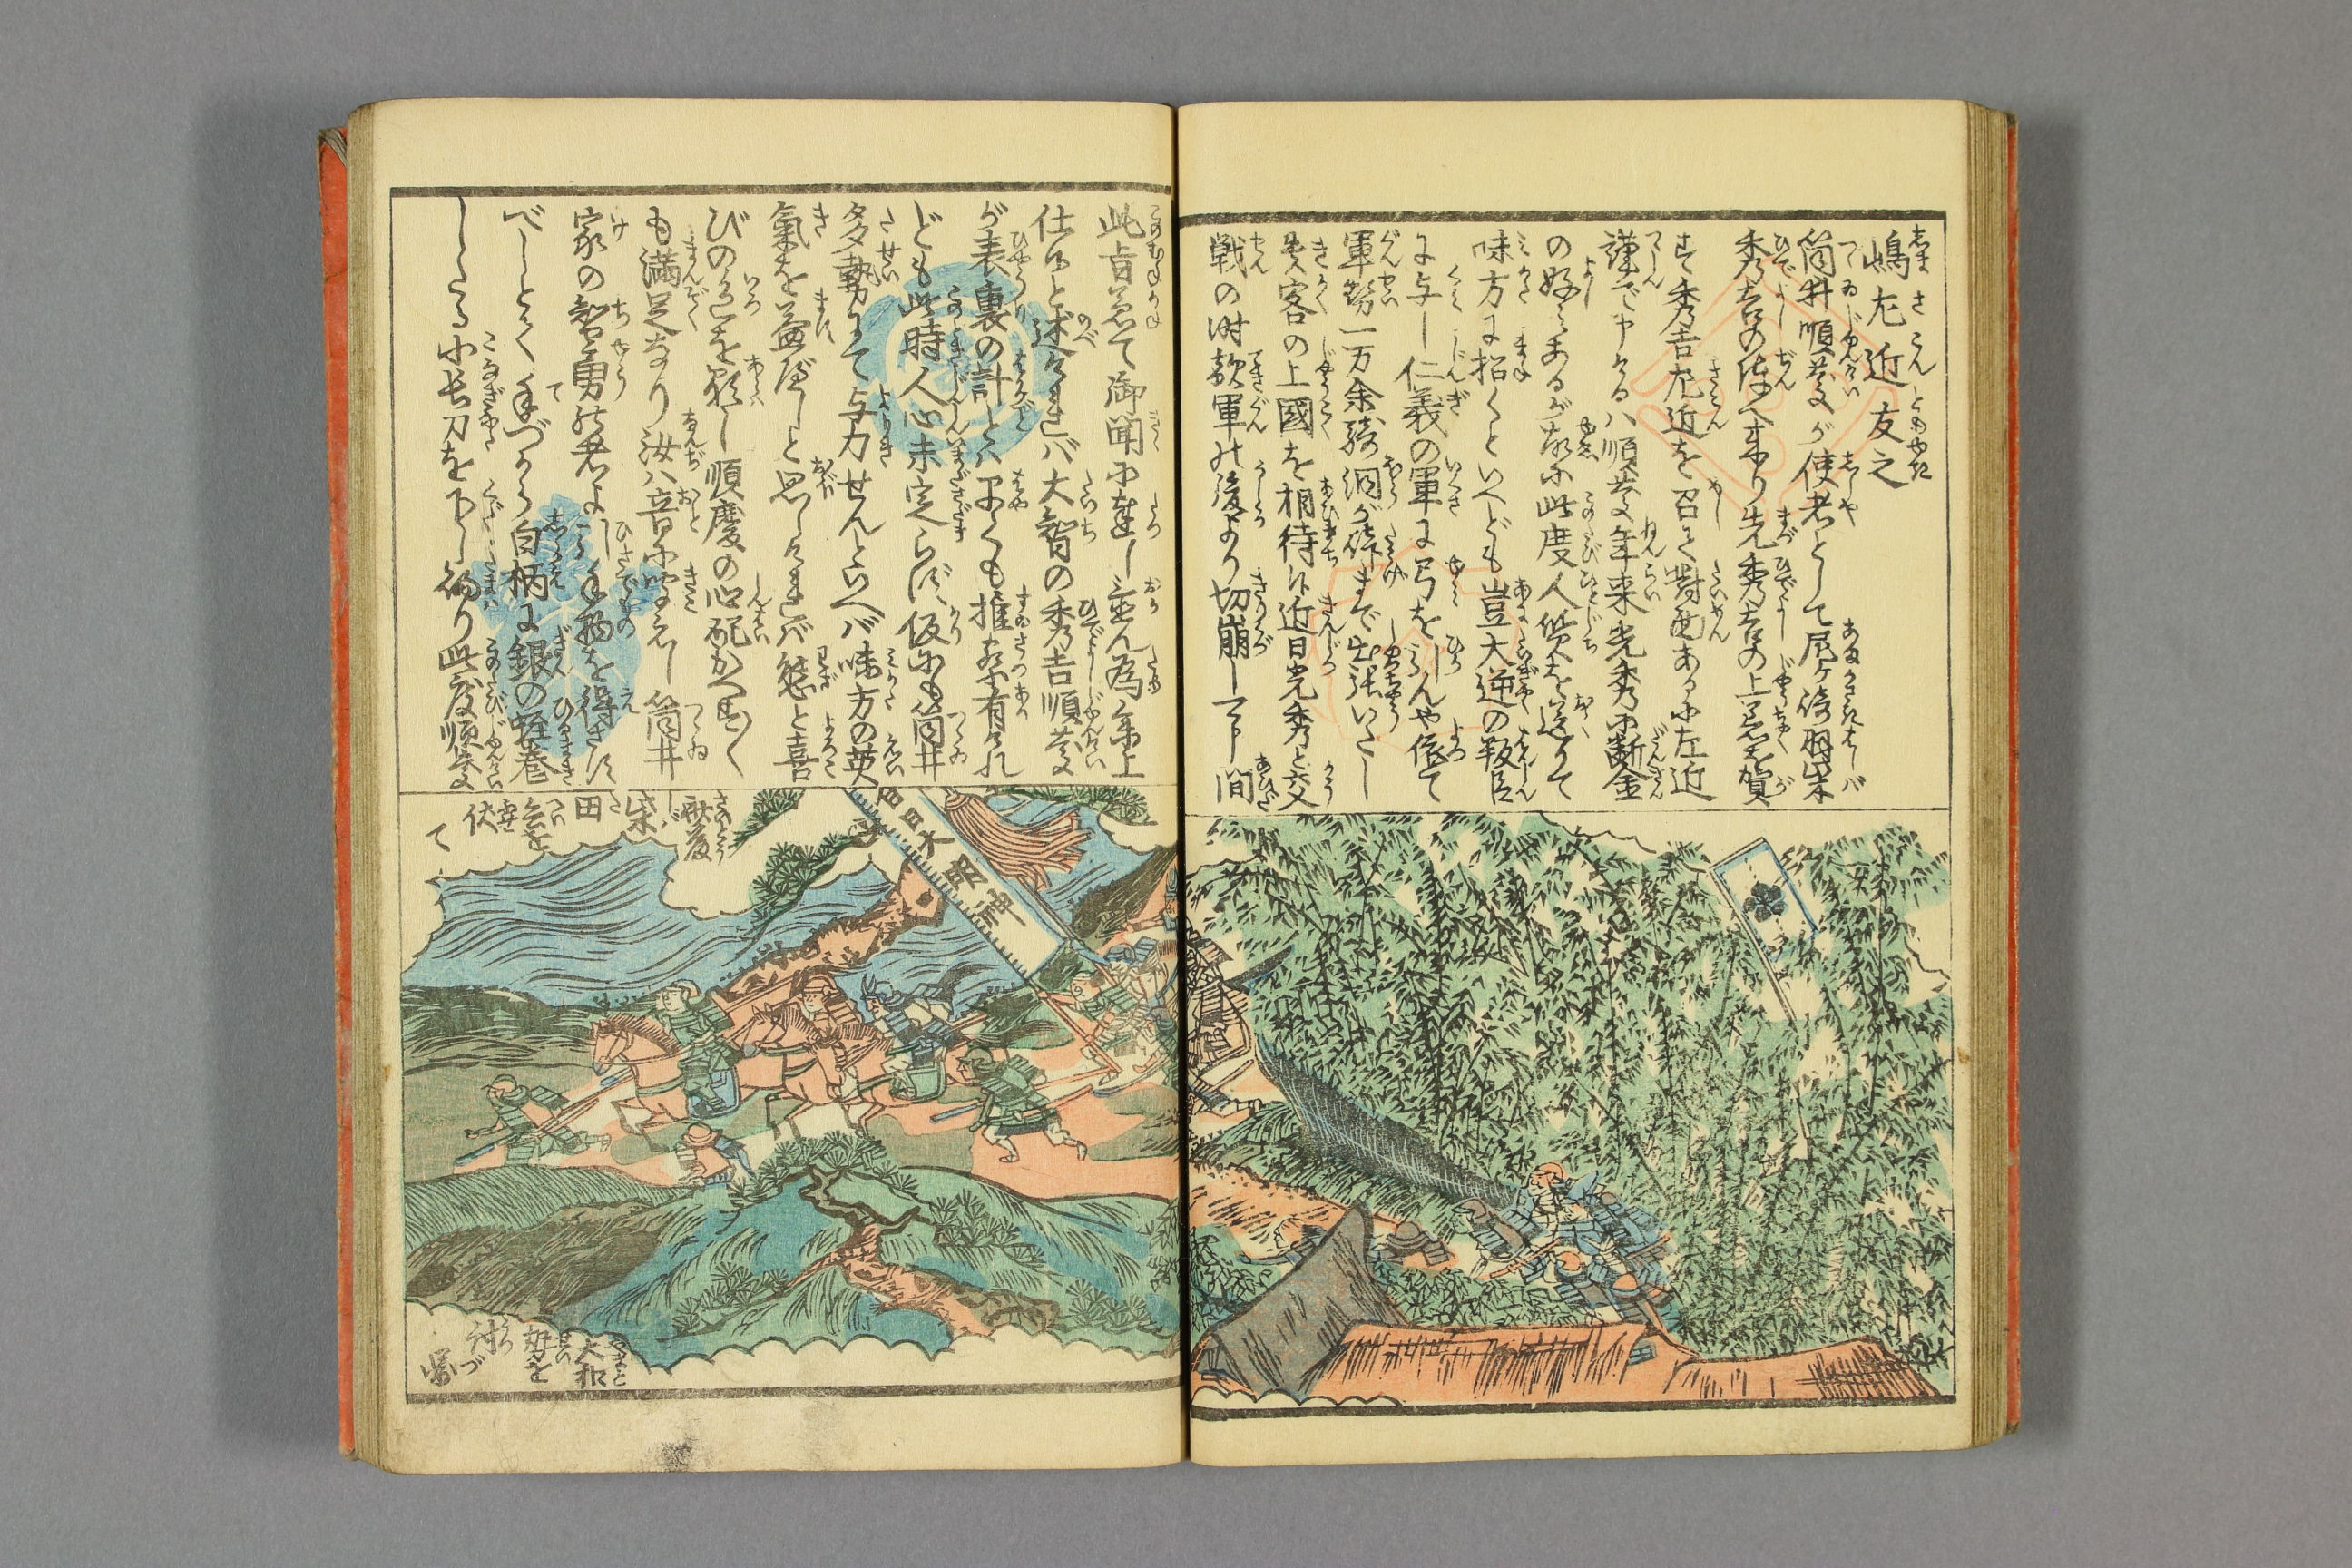 嶋左近友之
筒井順慶が使者として尼ヶ崎羽柴
秀吉の陣へ来り先秀吉の上着を賀
す秀吉左近を召て対面あるに左近
謹で申けるハ順慶年来光秀に断金
の好みあるが故に此度人質を送りて
味方に招くといへども豈大逆の叛臣
に与し仁義の軍に弓をひかんや依て
軍勢一万余騎洞が峠まで出張いたし
貴客の上國を相待候近日光秀と交
戦の時敵軍の後より切崩し可申間
此旨兼て御聞に達し置ん為参上
仕候と述けれバ大智の秀吉順慶
が表裏の計とハ早くも推察有けれ
ども此時人心未定らず仮にも筒井
多勢にて与力せんといへバ味方の英
氣を益べしと思しけれバ態と喜
びの色を顕し順慶の心配かへす〴〵
も満足なり汝ハ音に聞えし筒井
家の智勇の者よし手物を得させ
べしとて手づから白柄に銀の蛭巻
したる小長刀を下し給り此度順慶
春日大明神
斎藤
柴
田
会を
伏
て
大和
勢を
討